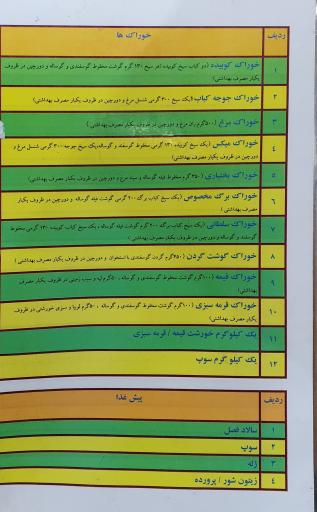 ردیف
خوراک ها
۱
خوراک کوبیده (دو کباب سیخ کوبیده (هر سیخ ۱۳۰ گرم گوشت مخلوط گوسفندی و گوساله و دورچین در ظروف
یکبار مصرف بهداشتی)
۲
خوراک جوجه کباب (یک سیخ ۳۰۰ گرمی شنسل مرغ و دورچین در ظروف یکبار مصرف بهداشتی)
۳
خوراک مرغ (۵۰۰ گرم ران مرغ و دورچین در ظروف یکبار مصرف بهداشتی)
۴
خوراک میکس (یک سیخ کوبیده ۱۳۰ گرمی مخلوط گوسفند و گوساله، یک سیخ جوجه ۳۰۰ گرمی شنسل مرغ و
دورچین در ظروف یکبار مصرف بهداشتی)
۵
خوراک بختیاری (۳۵۰ گرم مخلوط فیله گوساله و سینه مرغ و دورچین در ظروف یکبار مصرف بهداشتی)
۶
خوراک برگ مخصوص (یک سیخ کباب برگ ۲۰۰ گرمی گوشت فیله گوساله و دورچین در ظروف یکبار
مصرف بهداشتی)
۷
خوراک سلطانی (یک سیخ کباب برگ ۲۰۰ گرم گوشت فیله گوساله، یک سیخ کباب کوبیده ۱۳۰ گرمی مخلوط
گوسفند و گوساله و دورچین در ظروف یکبار مصرف بهداشتی)
۸
خوراک گوشت گردن (۲۵۰ گرم گردن گوسفندی با استخوان و دورچین در ظروف یکبار مصرف بهداشتی)
۹
خوراک قیمه (۱۰۰ گرم گوشت مخلوط گوسفندی و گوساله، ۵۰ گرم لپه و سیب زمینی در ظروف یکبار مصرف
بهداشتی)
۱۰
خوراک قرمه سبزی (۱۰۰ گرم گوشت مخلوط گوسفندی و گوساله، ۵۰ گرم لوبیا و سبزی خورشتی در ظروف
یکبار مصرف بهداشتی)
۱۱
یک کیلوگرم خورشت قیمه / قرمه سبزی
۱۲
یک کیلو گرم سوپ
ردیف
پیش غذا
۱
سالاد فصل
۲
سوپ
۳
ژله
۴
زیتون شور / پرورده